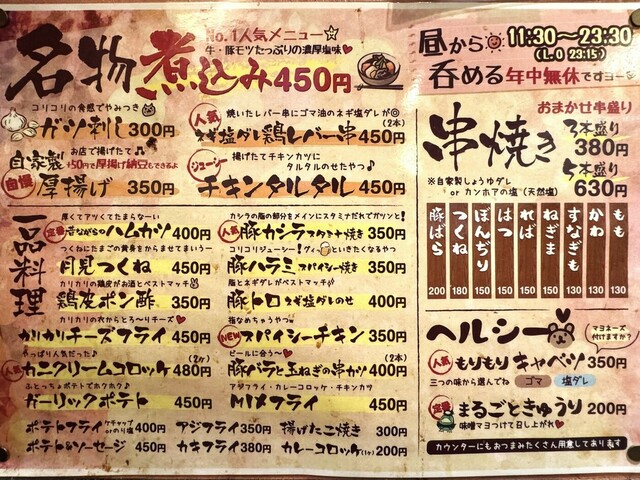 No.1人気メニュー☆
牛・豚モツたっぷりの濃厚塩味♥
名物煮込み450円
昼から呑める
11:30〜23:30
(L.O 23:15)
年中無休ですヨ〜
コリコリの食感でやみつき
ガツ刺し300円
人気
焼いたレバー串にゴマ油のネギ塩ダレが◎
ねぎ塩ダレ鶏レバー串 450円
(2本)
自家製
自慢
お店で揚げてた
+50円で厚揚げ納豆もできるよ
厚揚げ 350円
ジューシー
揚げたてチキンカツに
タルタルのせたやつ♪
チキンタルタル 450円
一品料理
厚くてアツくてたまらなーい
定番 昔ながらのハムカツ 400円
つくねにたまごの黄身をからませてまいうー
月見つくね 450円
カリカリの鶏皮がお酒とベストマッチ
鶏皮ポン酢 350円
カリカリの衣からとろ〜りチーズ♥
カリカリチーズフライ 450円
やっぱり人気だった♪
人気 カニクリームコロッケ 480円
(2ケ)
ふとっちょポテトでホクホク♪
ガーリックポテト 450円
カシラの脂の部分をメインにスタミナだれでガツンと!
人気 豚カシラスタミナ焼き 350円
コリコリジューシー!グィーといきたくなるやつ
豚ハラミスパイシー焼き 350円
脂とネギダレがベストマッチ
豚トロねぎ塩ダレのせ 400円
指なめちゃうやつ
NEW スパイシーチキン 350円
ビールに合う〜♥
豚バラと玉ねぎの串カツ 450円
(2本)
アジフライ・カレーコロッケ・チキンカツ
MIXフライ 450円
ポテトフライ ケチャップorのり塩 400円
アジフライ 350円
揚げたこ焼き 300円
ポテト&ソーセージ 450円
カキフライ 380円
カレーコロッケ(1ケ) 200円
串焼き
おまかせ串盛り
3本盛り
380円
5本盛り
630円
※自家製しょうゆダレ
or カンホアの塩(天然塩)
もも 130
かわ 130
すなぎも 130
ねぎま 150
ればー 150
はつ 150
ぼんぢり 150
つくね 180
豚ばら 200
ヘルシー
マヨネーズ
付けますか?
人気 もりもりキャベツ 350円
三つの味から選んでね
ゴマ
塩ダレ
定番 まるごときゅうり 200円
味噌マヨつけて召し上がれ♥
カウンターにもおつまみたくさん用意してあります